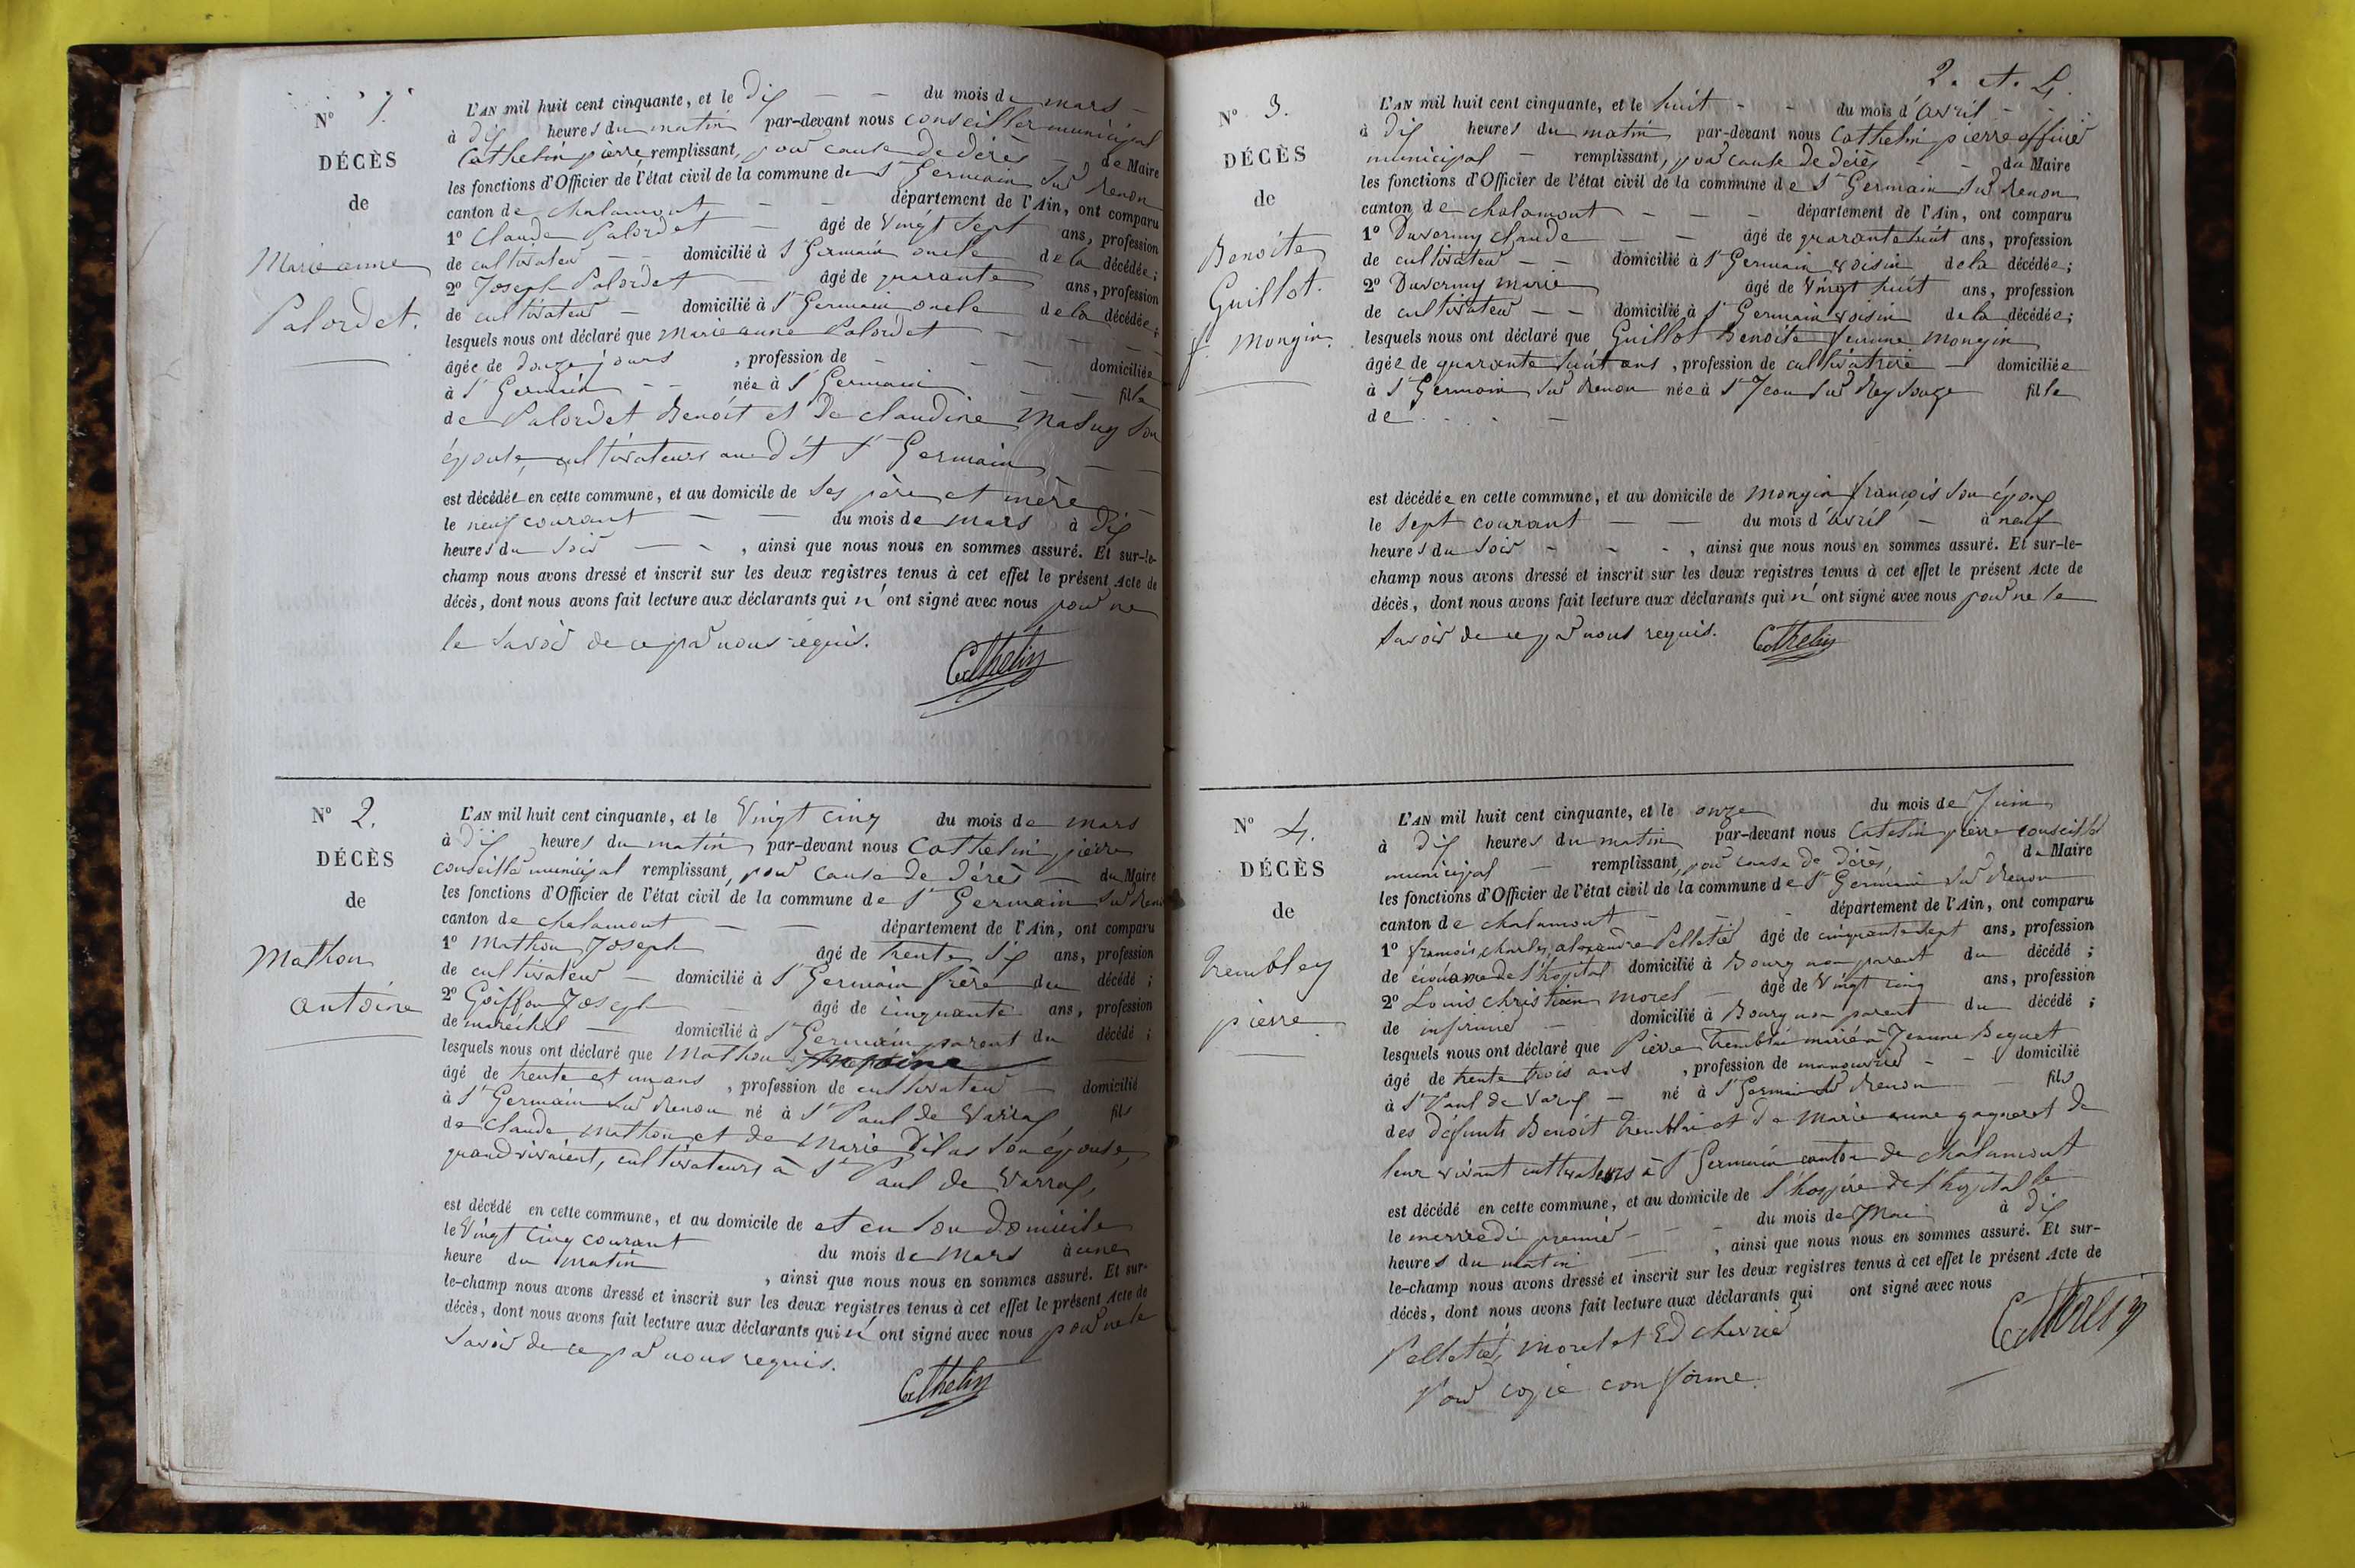 N° 1.
DÉCÈS
de
Marie anne
Palordet.
L'AN mil huit cent cinquante, et le dix — — du mois de mars —
à dix heures du matin par-devant nous conseiller municipal
Cathelin pierre, remplissant, pour cause de décès — de Maire
les fonctions d'Officier de l'état civil de la commune de St Germain sur Renon
canton de chalamont — — département de l'Ain, ont comparu
1° Claude Palordet — âgé de vingt sept ans, profession
de cultivateur — — domicilié à St Germain oncle de la décédée;
2° Joseph Palordet — âgé de quarante ans, profession
de cultivateur — domicilié à St Germain oncle de la décédée;
lesquels nous ont déclaré que Marie anne Palordet — — —
âgée de douze jours , profession de — — — domiciliée
à St Germain — — née à St Germain — — fille
de Palordet Benoit et de claudine Masuy son
épouse, cultivateurs au dit St Germain — —
est décédée en cette commune, et au domicile de ses père et mère
le neuf courant — — du mois de mars à dix
heures du soir — - , ainsi que nous nous en sommes assuré. Et sur-le-
champ nous avons dressé et inscrit sur les deux registres tenus à cet effet le présent Acte de
décès, dont nous avons fait lecture aux déclarants qui n' ont signé avec nous pour ne
le savoir de ce par nous requis.
Cathelin
N° 2.
DÉCÈS
de
Mathon
antoine
L'AN mil huit cent cinquante, et le vingt cinq du mois de mars
à dix heures du matin par-devant nous Cathelin pierre
conseiller municipal remplissant, pour cause de décès — du Maire
les fonctions d'Officier de l'état civil de la commune de St Germain sur Renon
canton de chalamont — — département de l'Ain, ont comparu
1° Mathon Joseph âgé de trente six ans, profession
de cultivateur — domicilié à St Germain frère du décédé ;
2° Goiffon Joseph — âgé de cinquante ans, profession
de maréchal — domicilié à St Germain parent du décédé ;
lesquels nous ont déclaré que Mathon Antoine —
âgé de trente et un ans , profession de cultivateur — domicilié
à St Germain sur Renon né à St Paul de Varrax, fils
de Claude Mathon et de Marie son épouse,
quand vivaient, cultivateurs à St Paul de Varrax,
est décédé en cette commune, et au domicile de et en son domicile
le vingt cinq courant du mois de mars à une
heure du matin , ainsi que nous nous en sommes assuré. Et sur-
le-champ nous avons dressé et inscrit sur les deux registres tenus à cet effet le présent Acte de
décès, dont nous avons fait lecture aux déclarants qui n' ont signé avec nous pour ne le
savoir de ce par nous requis.
Cathelin
2. et. 4.
N° 3.
DÉCÈS
de
Benoite
Guillot.
f. Mongin.
L'AN mil huit cent cinquante, et le huit - - du mois d'avril -
à dix heures du matin par-devant nous Cathelin pierre officier
municipal — remplissant, pour cause de décès — du Maire
les fonctions d'Officier de l'état civil de la commune de St Germain sur Renon
canton de chalamont - - - département de l'Ain, ont comparu
1° Duverny Claude — — âgé de quarante huit ans, profession
de cultivateur — — domicilié à St Germain voisin de la décédée;
2° Duverny marie âgé de vingt huit ans, profession
de cultivateur — — domicilié à St Germain voisin de la décédée;
lesquels nous ont déclaré que Guillot Benoite femme Mongin
âgée de quarante huit ans , profession de cultivatrice — domiciliée
à St Germain sur Renon née à St Jean sur Reyssouze fille
de
est décédée en cette commune, et au domicile de Mongin françois son époux
le sept courant — — du mois d'avril — à neuf
heures du soir - - - , ainsi que nous nous en sommes assuré. Et sur-le-
champ nous avons dressé et inscrit sur les deux registres tenus à cet effet le présent Acte de
décès, dont nous avons fait lecture aux déclarants qui n' ont signé avec nous pour ne le
savoir de ce par nous requis.
Cathelin
N° 4.
DÉCÈS
de
Trembley
pierre
L'AN mil huit cent cinquante, et le onze du mois de Juin
à dix heures du matin par-devant nous Catelin pierre conseiller
municipal — remplissant, pour cause de décès, de Maire
les fonctions d'Officier de l'état civil de la commune de St Germain sur Renon
canton de chalamont - - département de l'Ain, ont comparu
1° françois charles alexandre Pelletier âgé de cinquante sept ans, profession
de économe de l'hôpital domicilié à Bourg non parent du décédé ;
2° Louis christian Morel — âgé de vingt cinq ans, profession
de infirmier — domicilié à Bourg non parent du décédé ;
lesquels nous ont déclaré que Pierre Tremblai marié à Jeanne Beguet
âgé de trente trois ans , profession de manouvrier - - domicilié
à St Paul de Varax — né à St Germain sur Renon — fils
des défunts Benoit Tremblai et de Marie anne gagneret de
leur vivant cultivateurs à St Germain canton de chalamont
est décédé en cette commune, et au domicile de l'hospice de l'hôpital le
le mercredi premier - - du mois de Mai à dix
heures du matin — , ainsi que nous nous en sommes assuré. Et sur-
le-champ nous avons dressé et inscrit sur les deux registres tenus à cet effet le présent Acte de
décès, dont nous avons fait lecture aux déclarants qui ont signé avec nous
Pelletier, Morel et Ed chevrier
Pour copie conforme.
Cathelin